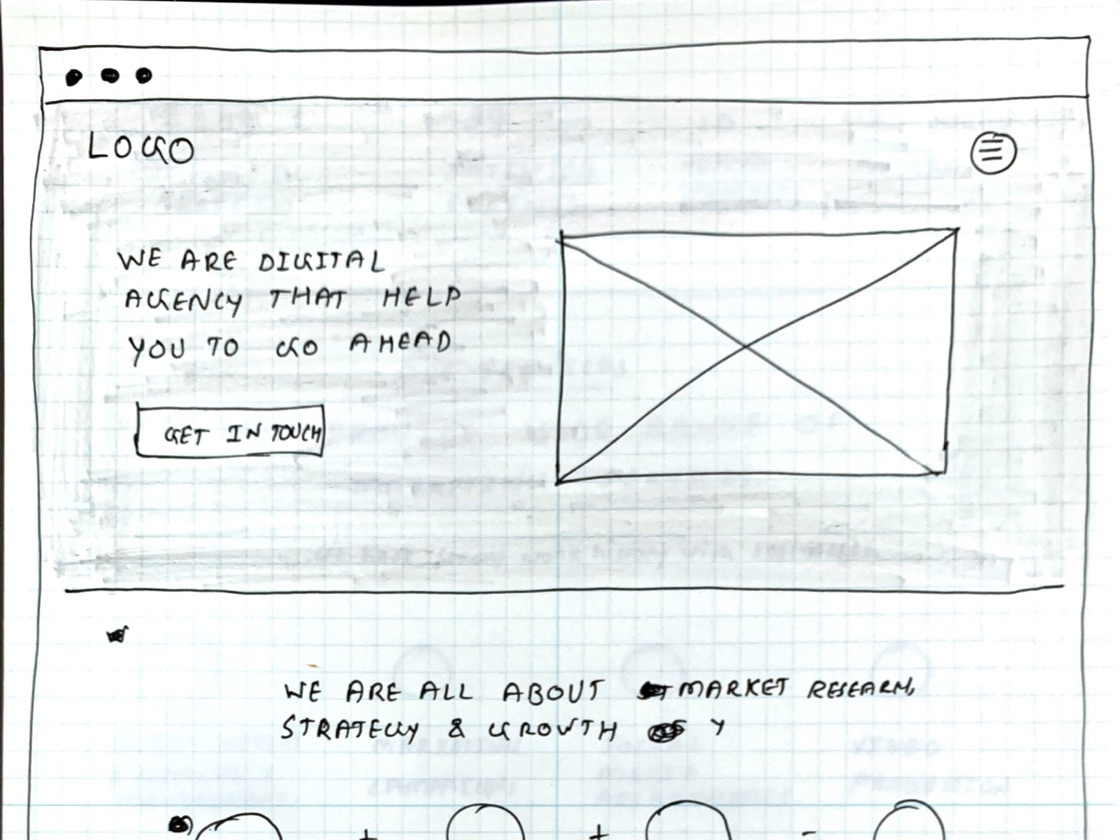 LOGO
WE ARE DIGITAL
AGENCY THAT HELP
YOU TO GO AHEAD
GET IN TOUCH
WE ARE ALL ABOUT MARKET RESEARCH,
STRATEGY & GROWTH Y
+ + =